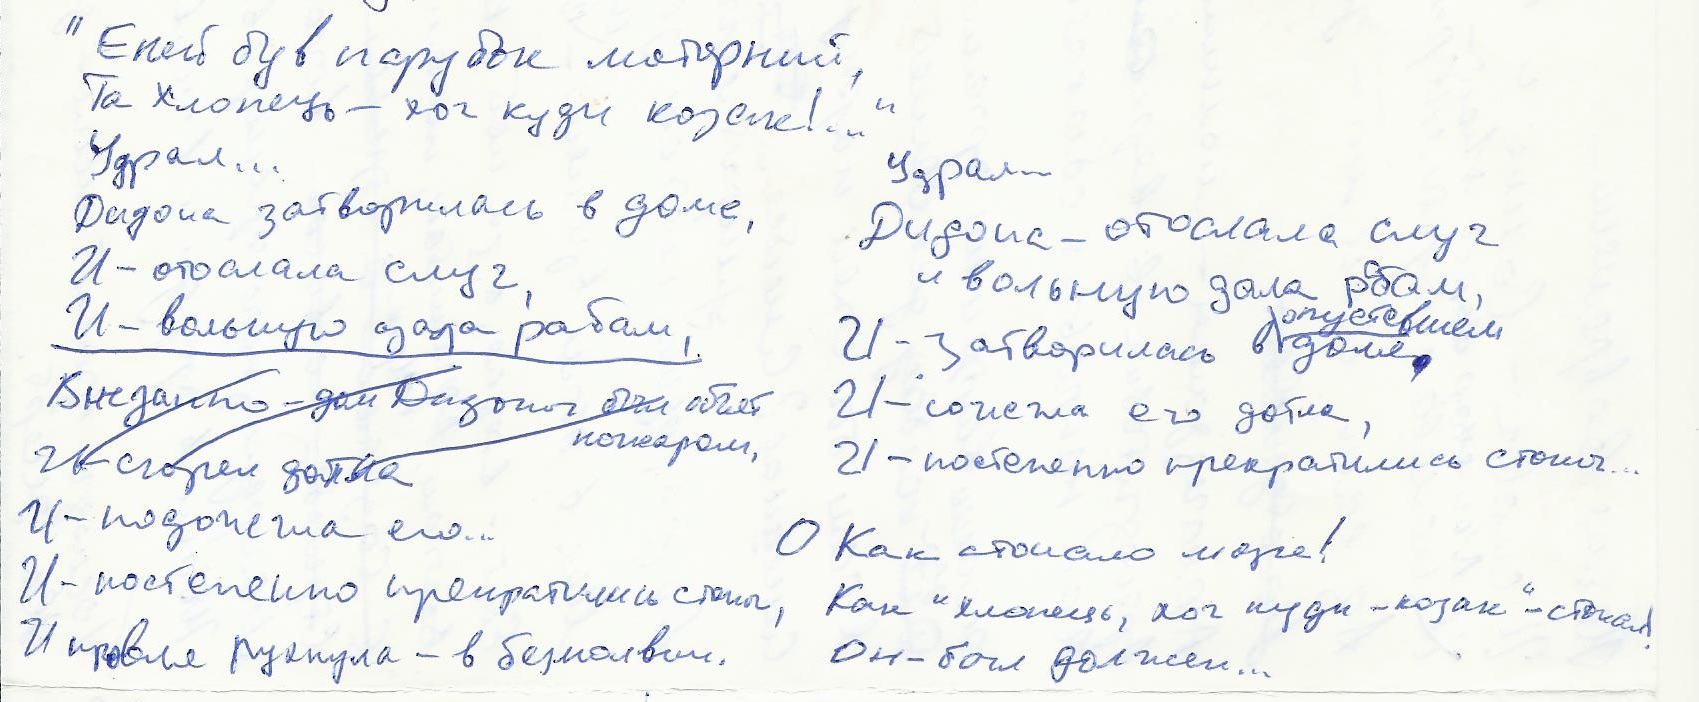 "Еней був парубок моторний,
Та хлопець – хоч куди козак!..."
Удрал...
Дидона затворилась в доме,
И – отослала слуг,
И – вольную дала рабам,
Внезапно – дом Дидоны был объят
пожаром,
И – сгорел дотла
И – подожгла его...
И – постепенно прекратились стоны,
И кровля рухнула – в безмолвии.
Удрал...
Дидона – отослала слуг
и вольную дала рабам,
опустевшем
И – затворилась в доме,
И – сожгла его дотла,
И – постепенно прекратились стоны...
О Как стонало море!
Как "хлопець, хоч куди – козак" – стонал!
Он – был должен...